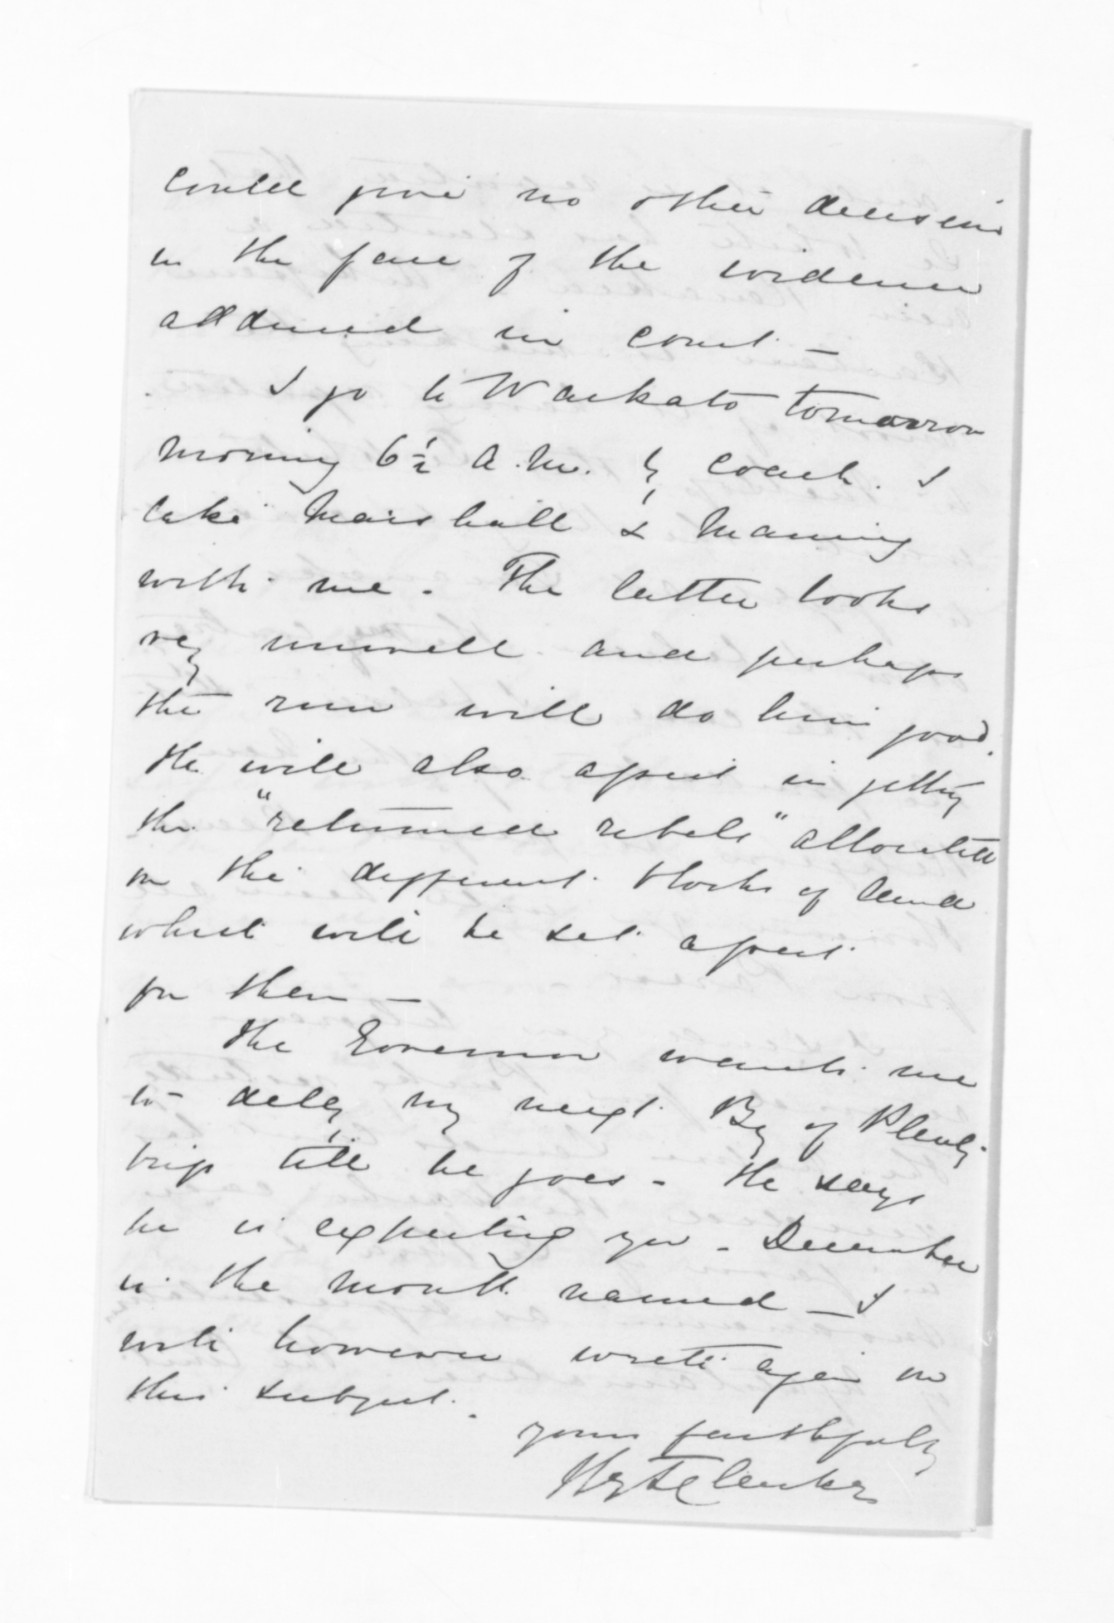 could give no other decision
in the face of the evidence
adduced in court —
I go to Waikato tomorrow
morning 6½ A.M. by coach. I
take Marshall & Manning
with me. The latter looks
very unwell and perhaps
the run will do him good.
He will also assist in getting
the "returned rebels" allocated
on the different blocks of land
which will be set apart
for them —
The Governor wants me
to delay my next Bay of Plenty
trip till he goes. He says
he is expecting you. December
is the month named — I
will however write again on
this subject.
yours faithfully
Hy T Clarke